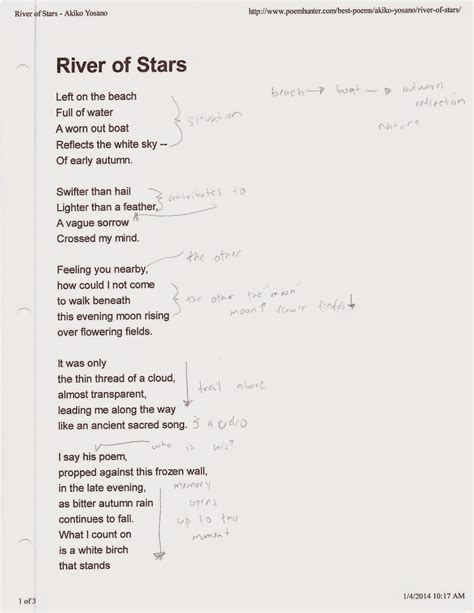 River of Stars - Akiko Yosano
http://www.poemhunter.com/best-poems/akiko-yosano/river-of-stars/
River of Stars
Left on the beach
Full of water
A worn out boat
Reflects the white sky --
Of early autumn.
situation
beach → boat → outward reflection
nature
Swifter than hail
Lighter than a feather,
A vague sorrow
Crossed my mind.
attributes to
Feeling you nearby,
how could I not come
to walk beneath
this evening moon rising
over flowering fields.
the other
the other the "moon"
moon? flower fields ↓
It was only
the thin thread of a cloud,
almost transparent,
leading me along the way
like an ancient sacred song.
trail above
I say his poem,
propped against this frozen wall,
in the late evening,
as bitter autumn rain
continues to fall.
What I count on
is a white birch
that stands
who is his?
memory
opens
up to this
moment
1 of 3
1/4/2014 10:17 AM